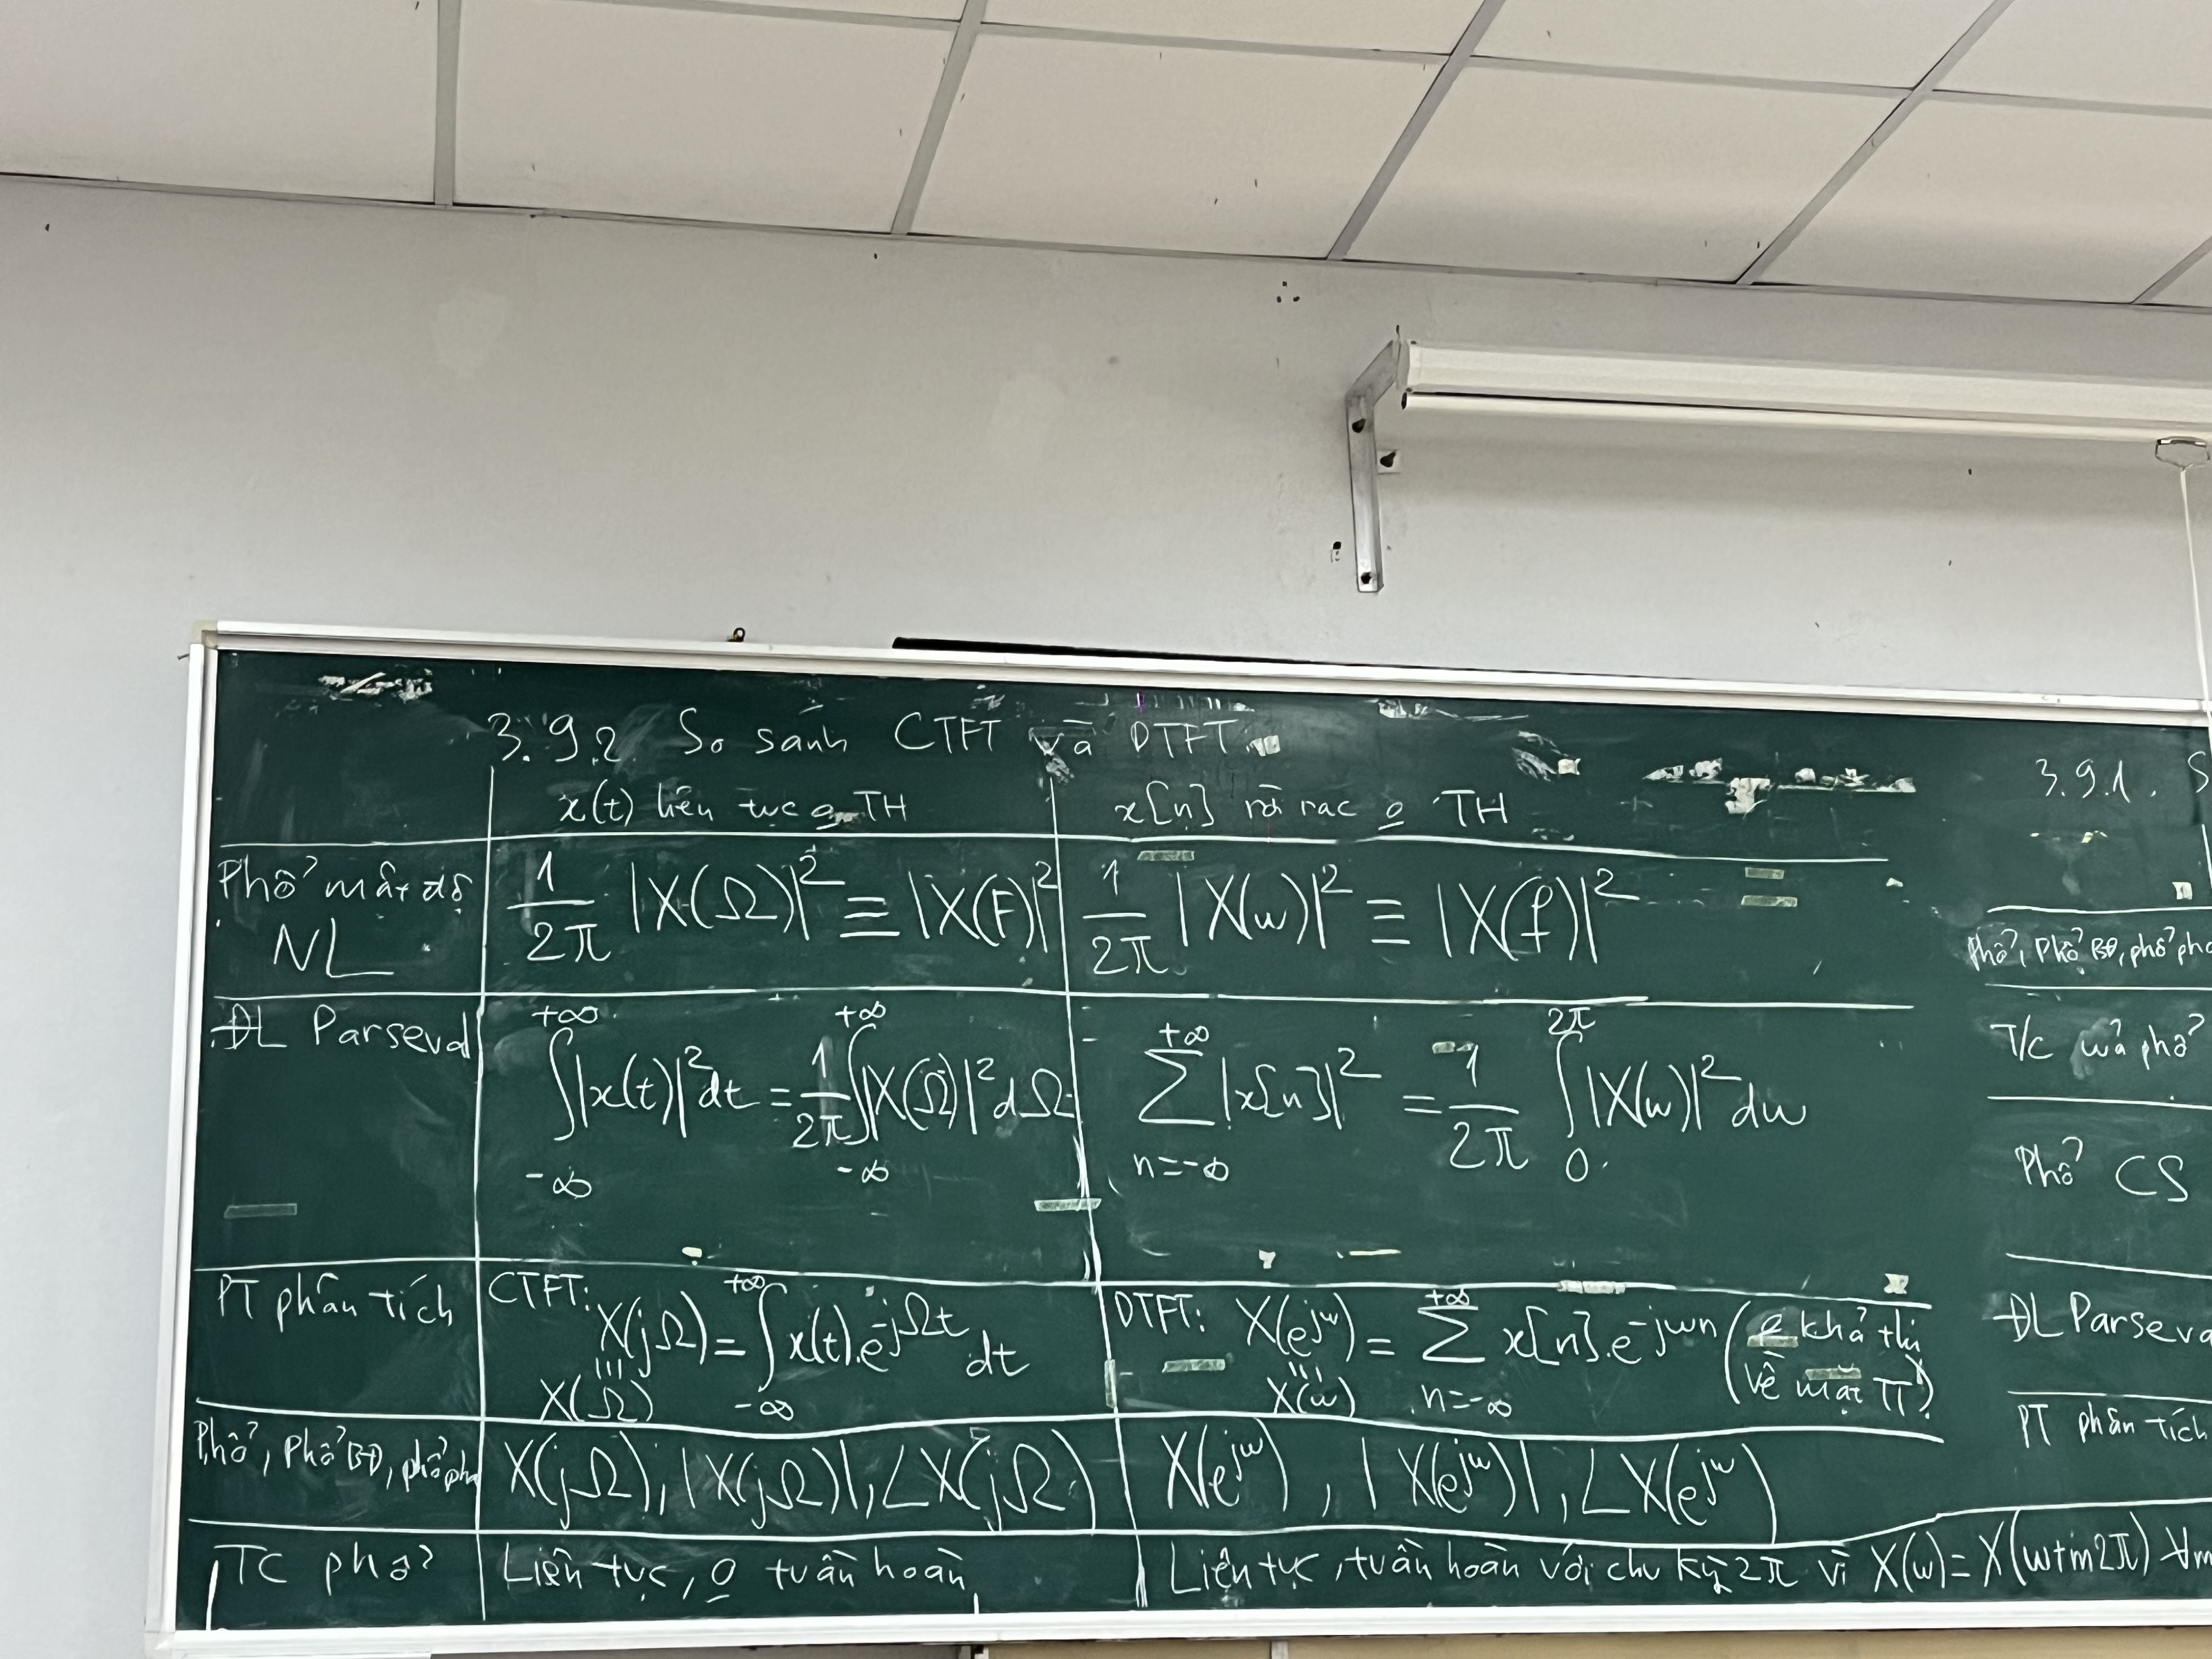 3.9.2 So sánh CTFT và DTFT
x(t) liên tục o TH
x[n] rời rạc o TH
Phổ mật độ NL
1/2π |X(Ω)|² ≡ |X(F)|²
1/2π |X(ω)|² ≡ |X(f)|²
ĐL Parseval
∫_{-∞}^{+∞} |x(t)|² dt = 1/2π ∫_{-∞}^{+∞} |X(Ω)|² dΩ
∑_{n=-∞}^{+∞} |x[n]|² = 1/2π ∫_{0}^{2π} |X(ω)|² dω
PT phân tích
CTFT: X(jΩ) = ∫_{-∞}^{+∞} x(t).e^{-jΩt} dt
≡
X(Ω)
DTFT: X(e^{jω}) = ∑_{n=-∞}^{+∞} x[n].e^{-jωn} (o khả thi
≡
X(ω)
về mặt TT)
Phổ, Phổ BĐ, phổ pha
X(jΩ), |X(jΩ)|, ∠X(jΩ)
X(e^{jω}), |X(e^{jω})|, ∠X(e^{jω})
TC phổ
Liên tục, o tuần hoàn
Liên tục, tuần hoàn với chu kỳ 2π vì X(ω) = X(ω+m2π) ∀m
3.9.1. S
Phổ, Phổ BĐ, phổ pha
T/c của phổ
Phổ CS
ĐL Parseva
PT phân tích